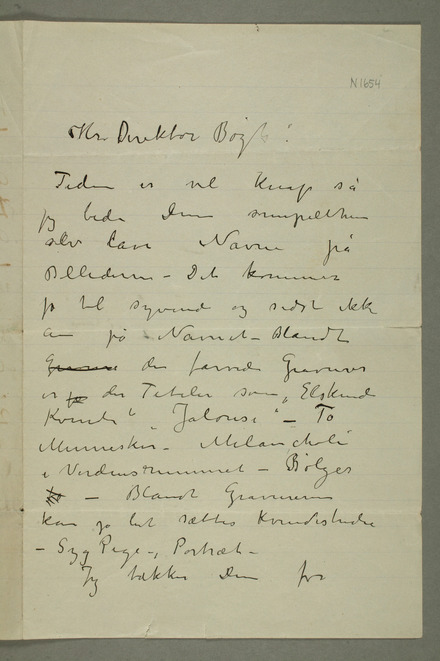 N 1654
Hr. Direktør Bøgh!
Tiden er vel knap så
jeg beder Dem simpelthen
selv lave Navne på
Billederne – Det kommer
jo til syvende og sidst ikke
an på Navnet – Blandt
de farvede Gravurer
er jo der Titeler som „Elskende
Kvinde" „Jalousi" – To
Mennesker – Melancholi
i Verdensrummet – Bølger
– Blandt Gravurerne
kan jo let sættes Kvindestudie
– Syg Pige –, Portræt –
Jeg takker Dem for